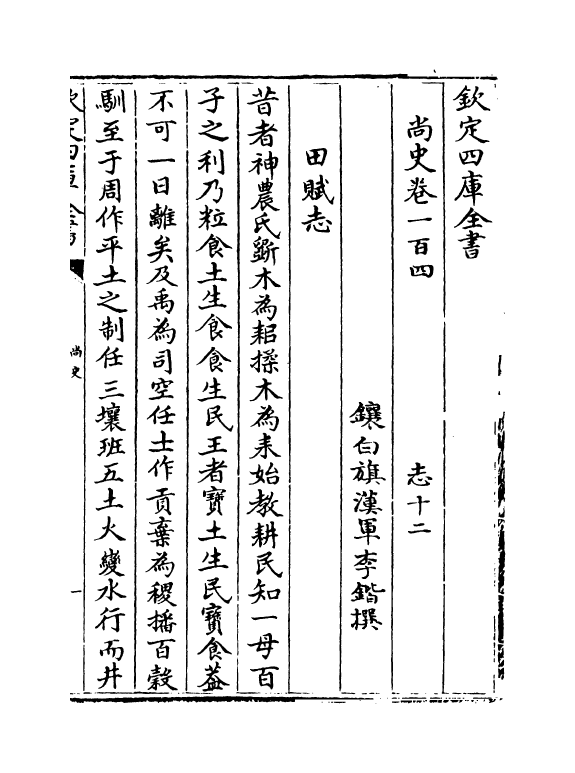 欽定四庫全書
尚史卷一百四　志十二
鑲白旗漢軍李鍇撰
田賦志
昔者神農氏斲木為耜揉木為耒始教耕民知一母百
子之利乃粒食土生食食生民王者寶土生民寶食葢
不可一日離矣及禹為司空任土作貢棄為稷播百穀
馴至于周作平土之制任三壤班五土火變水行而井
尚史
一